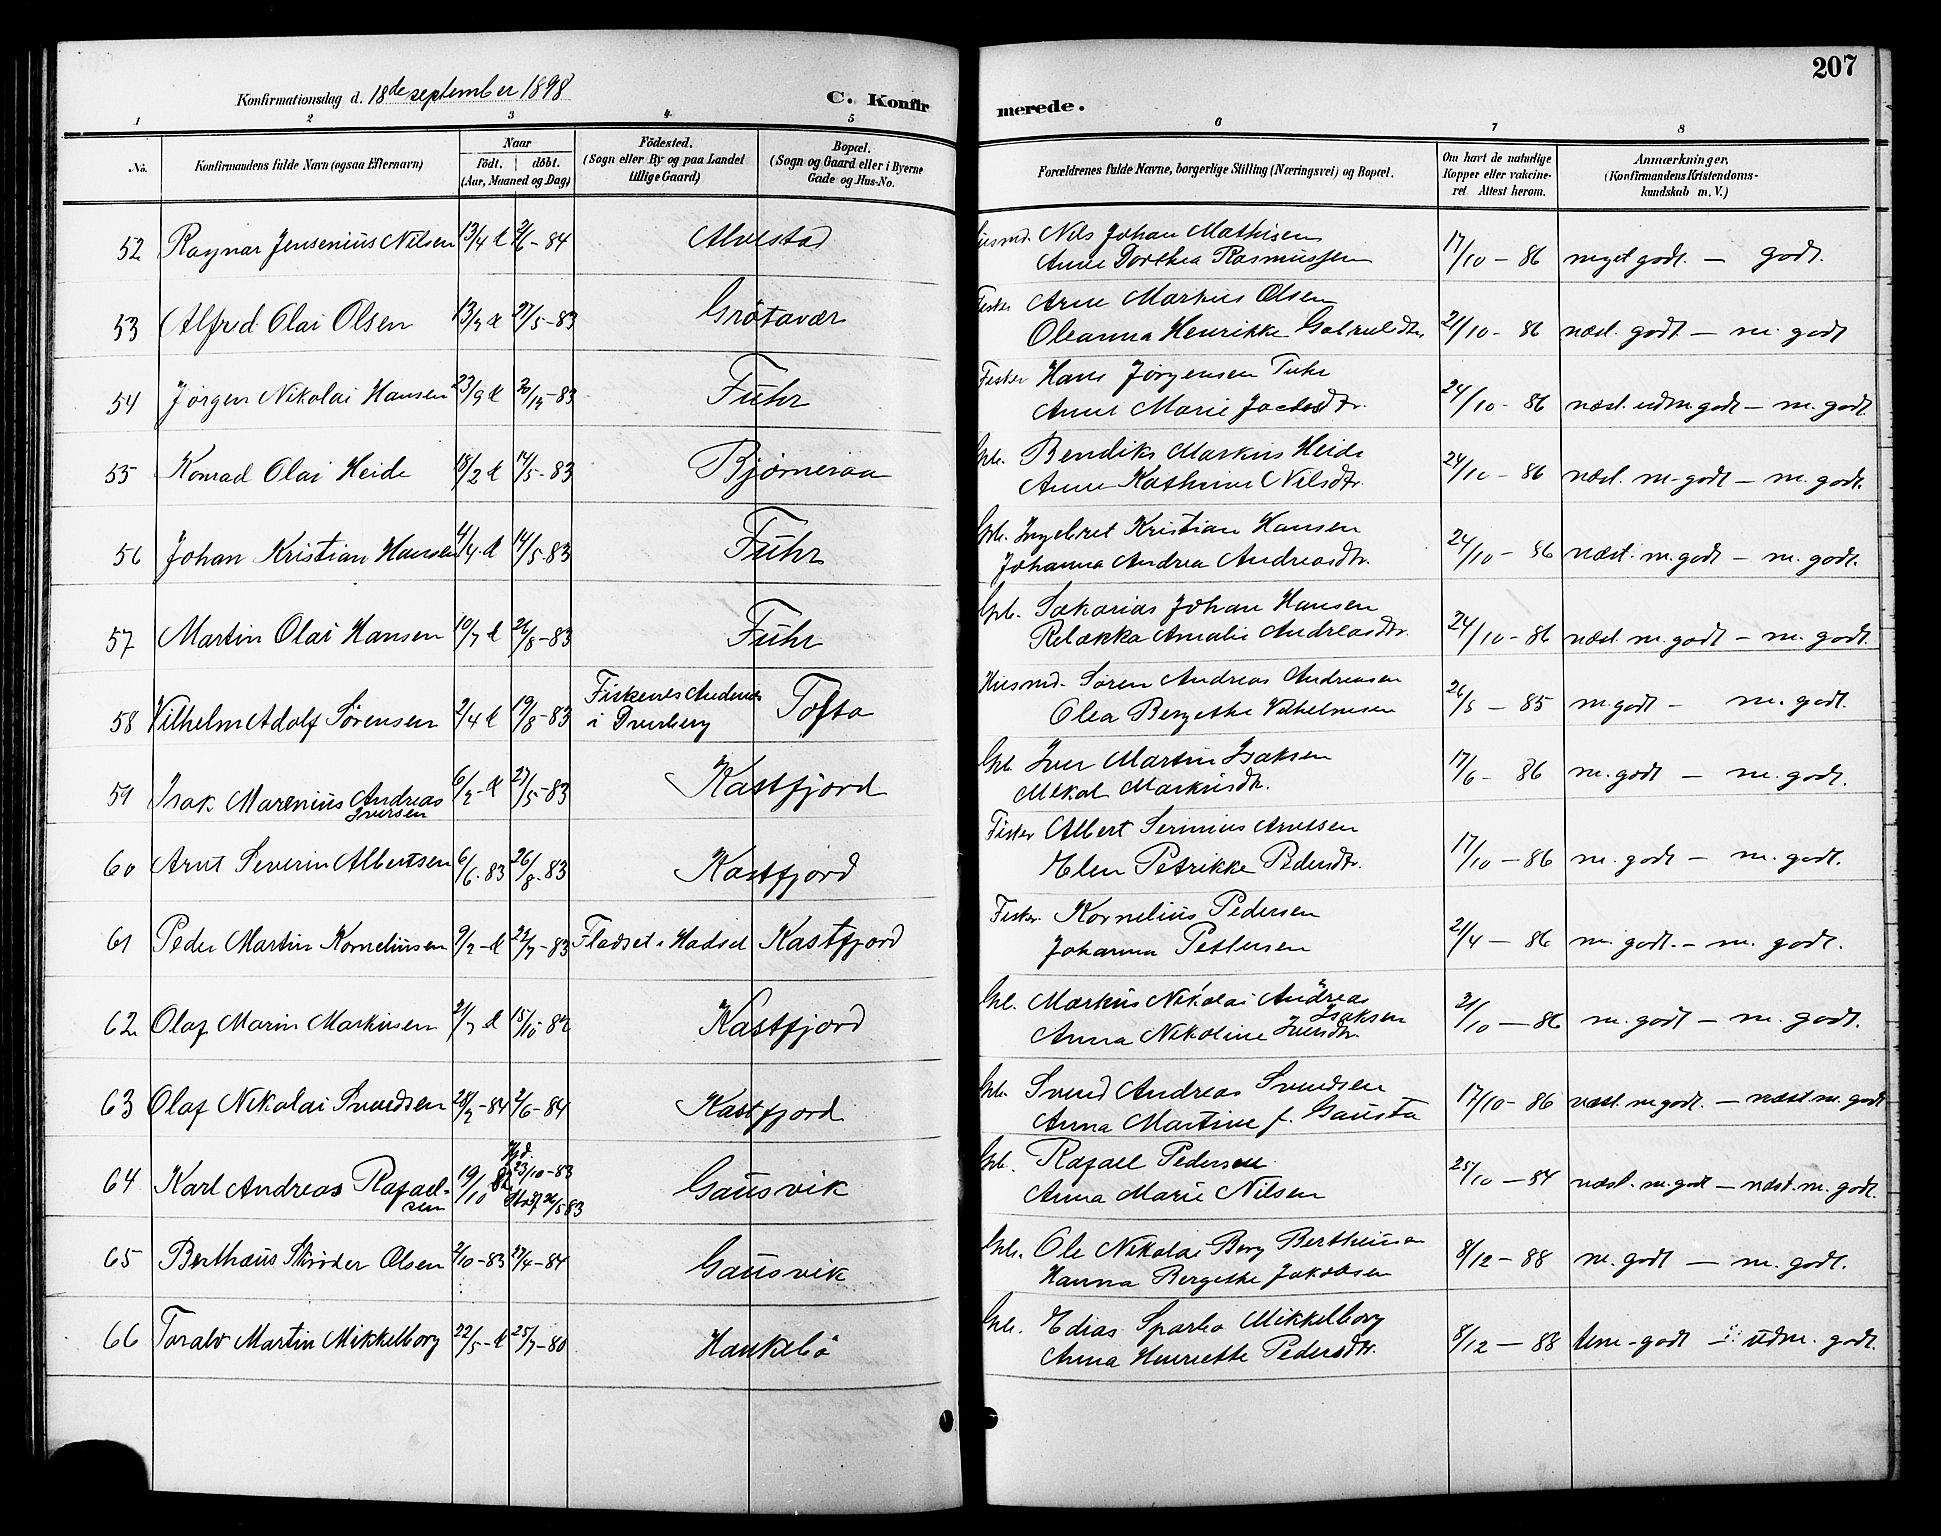 Konfirmationsdag d. 18de september 1898
C. Konfirmerede.
207
1 2 3 4 5 6 7 8
No.
Konfirmandens fulde Navn (ogsaa Efternavn)
Naar
födt. döbt.
(Aar, Maaned og Dag)
Födested.
(Sogn eller By og paa Landet
tillige Gaard)
Bopæl.
(Sogn og Gaard eller i Byerne
Gade og Hus-No.
Forældrenes fulde Navne, borgerlige Stilling (Næringsvei) og Bopæl.
Om havt de naturlige
Kopper eller vakcine-
ret. Attest herom.
Anmærkninger,
(Konfirmandens Kristendoms-
kundskab m. V.)
52 Ragnar Jensenius Nilsen 13/4 d 2/6-84 Alvestad Husmd. Nils Johan Mathisen 17/10 - 86 meget godt. - godt.
Anne Dorthea Rasmussen
53 Alfred Olai Olsen 13/3 d 27/5-83 Grötavær Fisker Arne Markus Olsen 21/10 - 86 næst. godt - m. godt
Oleanna Henrikke Gabrielsdtr.
54 Jørgen Nikolai Hansen 23/9 d -83 Fuhr Fisker Hans Jörgensen Fuhr 24/10 - 86 næst. udm. godt - m. godt.
Anne Marie
55 Konrad Olai Heide 18/2 d 14/5-83 Bjørneraa Gbr. Bendiks Markus Heide 24/10 - 86 næst. m. godt - m. godt.
Anne Kathrine Nilsdtr.
56 Johan Kristian Hansen d 14/5-83 Fuhr Gbr. Ingebret Kristian Hansen 24/10 - 86 næst. m. godt - m. godt.
Johanna Andrea Andreasdtr.
57 Martin Olai Hansen 10/7 d 26/8-83 Fuhr Gbr. Sakarias Johan Hansen 24/10 - 86 næst. m. godt - m. godt.
Rebekka Amalie Andreasdtr.
58 Vilhelm Adolf Sørensen 2/4 d 19/8-83 Fiskenes Andenes Tofta Husmd. Sören Andreas Andreasen 26/5 - 85 m. godt - m. godt.
i Dverberg Olea Bergethe Vilhelmsen
59 Isak Marenius Andreas 6/2 - d 27/5-83 Kastfjord Gbr. Iver Martin Isaksen 17/6 - 86 m. godt - m. godt.
Iversen Mekal Markusdtr.
60 Arnt Severin Albertsen 6/6-83 26/8-83 Kastfjord Fisker Albert Serinius Arntsen 17/10 - 86 m. godt - m. godt.
Elen Petrikke Pedersdtr.
61 Peder Martin Kornelius­en 9/2 - d 22/7-83 Fladset i Hadsel Kastfjord Fisker. Kornelius Pedersen 21/4 - 86 m. godt. - m. godt.
Johanna Pettersen
62 Olaf Marin Markusen 21/7 d 15/10-82 Kastfjord Gbr. Markus Nikolai Andreas 21/10 - 86 m. godt - m. godt.
Isaksen
Anna Nikoline Iversdtr.
63 Olaf Nikolai Svendsen 28/2-84 2/6-84 Kastfjord Gbr. Svend Andreas Svendsen 17/10 - 86 næst. m. godt. - næst. m. godt
Anna Martine f. Gausta
64 Karl Andreas Rafael- 19/10 82 Hjd. 23/10-83 Gausvik Gbr. Rafael Pedersen 25/10 - 84 næst. m. godt - næst. m. godt.
sen Stadf 26/5 83 Anna Marie Nilsen
65 Berthæus Skrøder Olsen 2/10-83 27/4-84 Gausvik Gbr. Ole Nikolai Berg Bertheusen 8/12 - 88 m. godt - m. godt.
Hanna Bergethe Jakobsen
66 Toralv Martin Mikkelborg 22/5 - d 25/7-80 Haukebö Gbr. Edias Sparbo Mikkelborg 8/12 - 88 - godt - udm. godt.
Anna Henriette Pedersdtr.